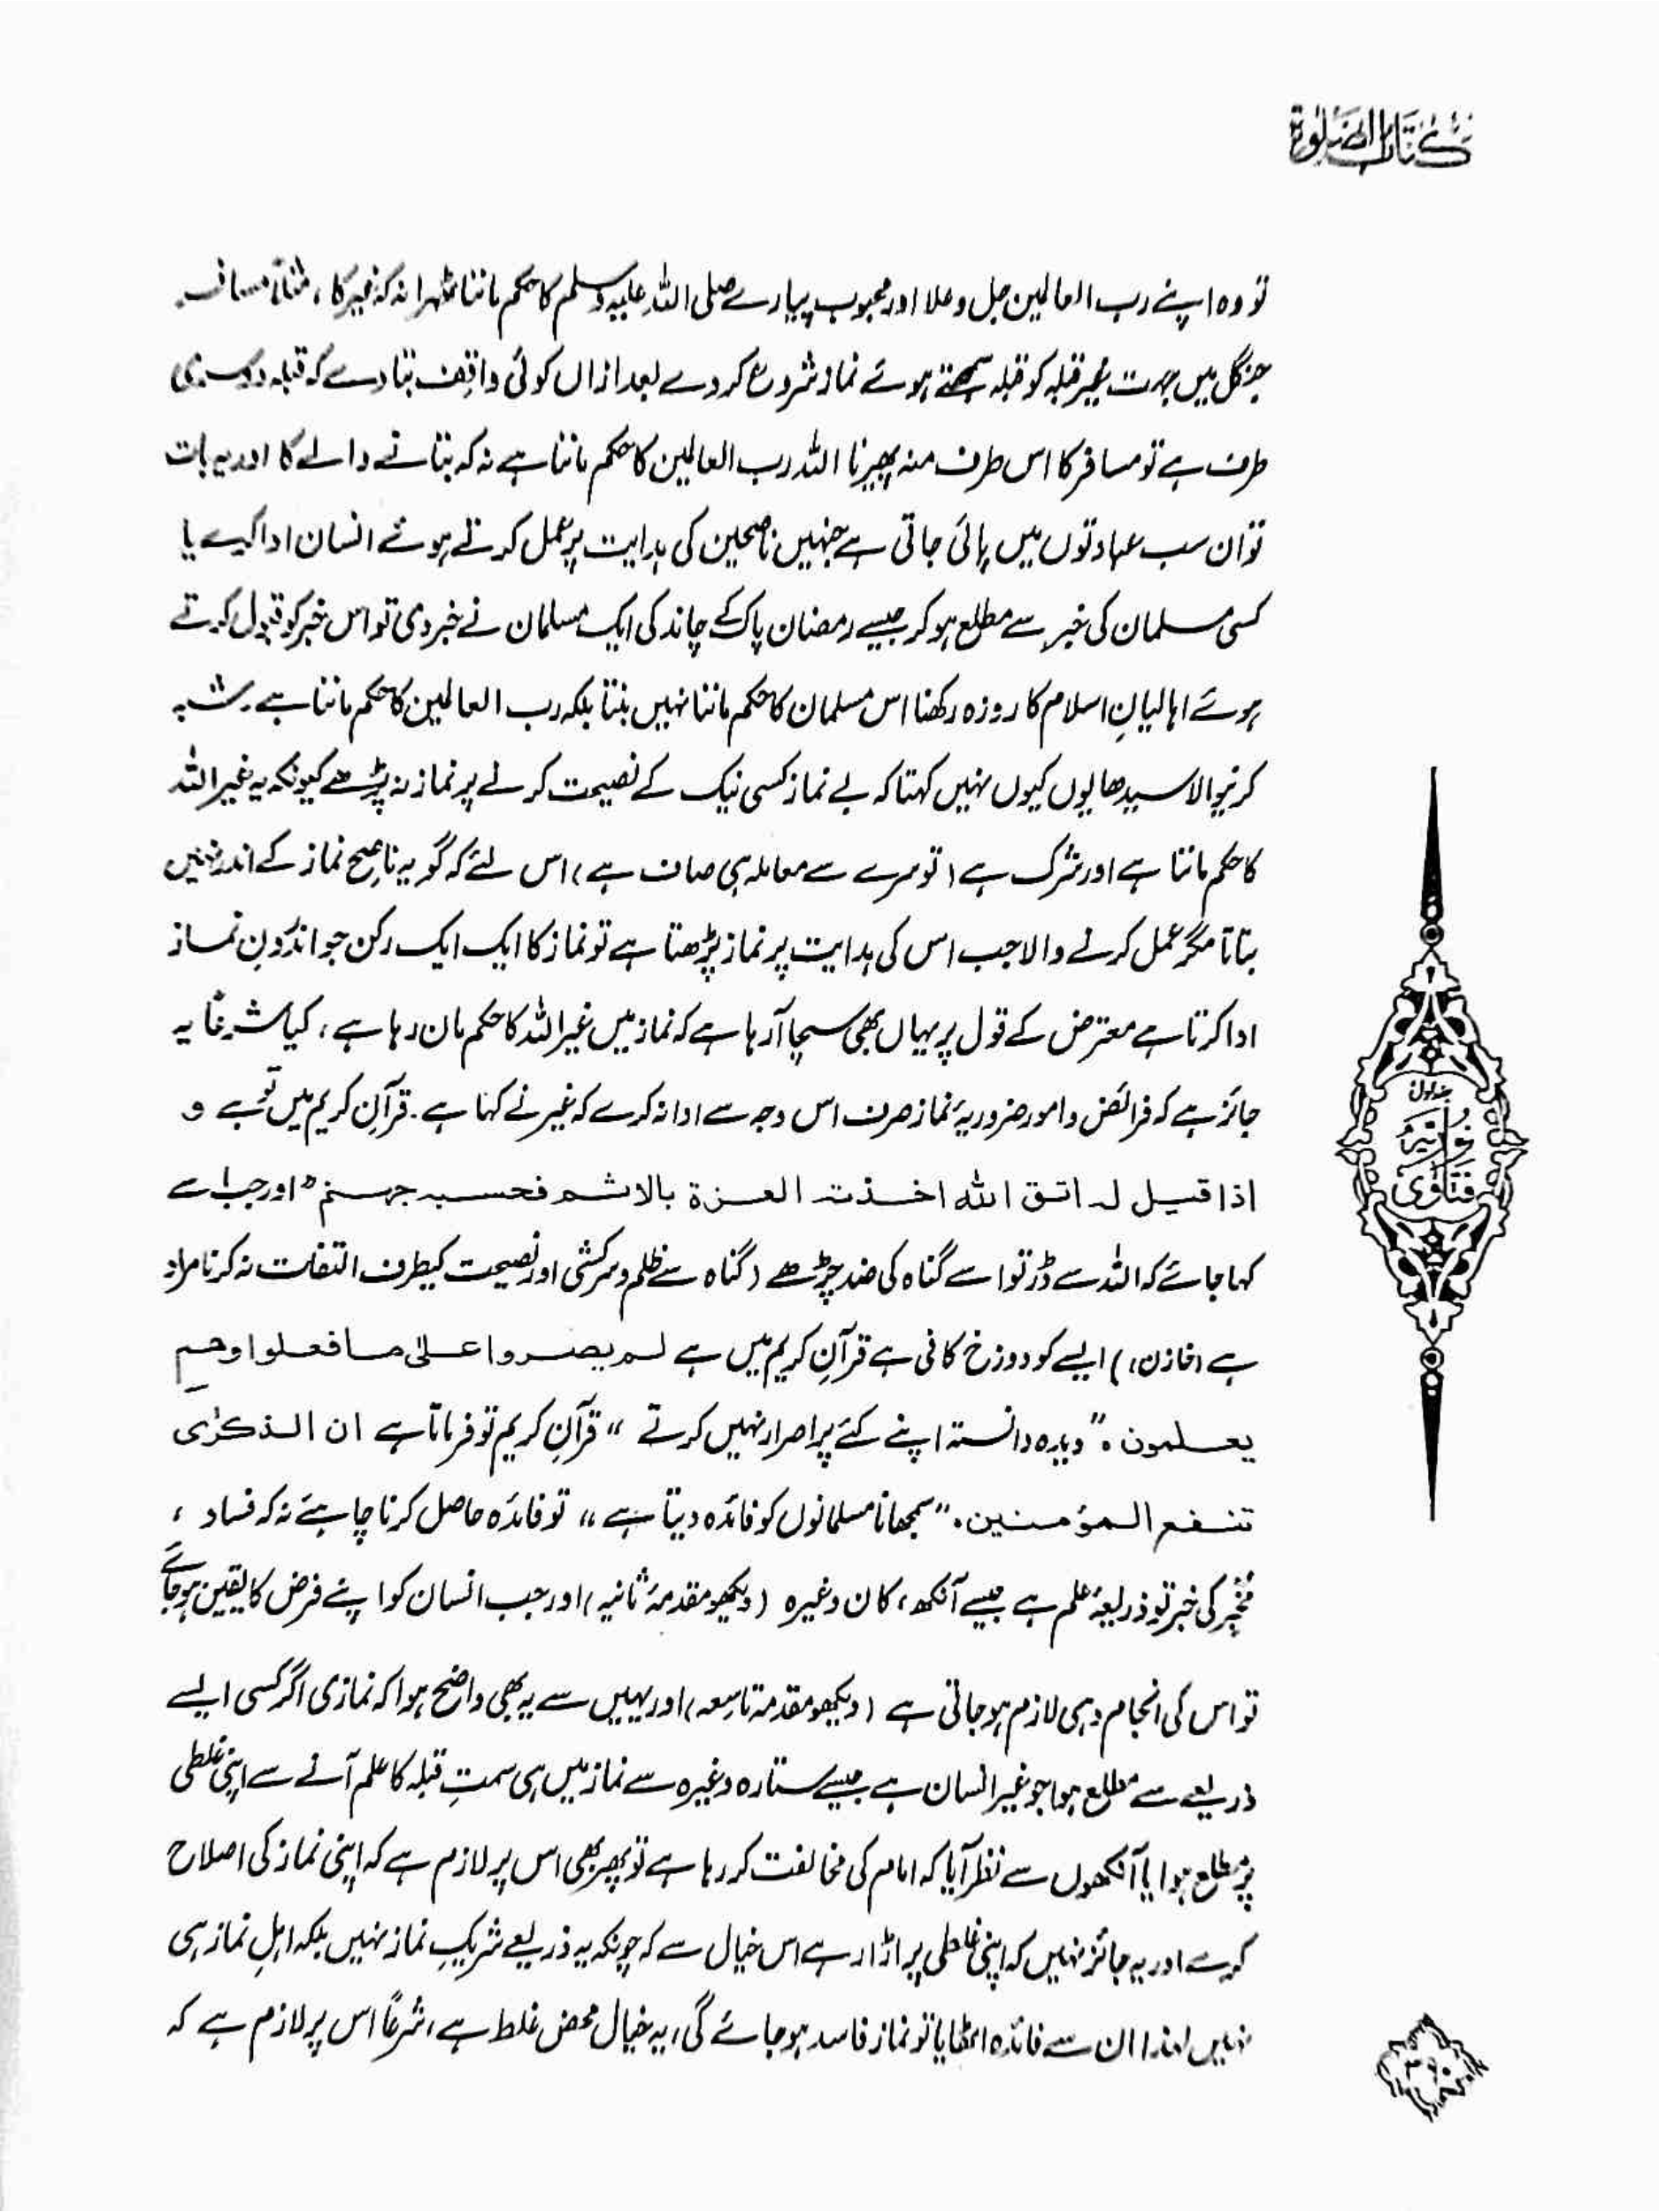 كتاب الصلوة
تو وہ اپنے رب العالمین جل وعلا اور محبوب پیارے صلی اللہ علیہ وسلم کا حکم ماننا ٹھہرا نہ کہ غیر کا ، مثلاً مسافر
جنگل میں جہت غیر قبلہ کو قبلہ سمجھتے ہوئے نماز شروع کر دے بعد ازاں کوئی واقف بتا دے کہ قبلہ دوسری
طرف ہے تو مسافر کا اس طرف منہ پھیرنا اللہ رب العالمین کا حکم ماننا ہے نہ کہ بتانے والے کا اور یہ بات
تو ان سب عبادتوں میں پائی جاتی ہے جنہیں ناصحین کی ہدایت پر عمل کرتے ہوئے انسان ادا کیے یا
کسی مسلمان کی خبر سے مطلع ہو کر جیسے رمضان پاک کے چاند کی ایک مسلمان نے خبر دی تو اس خبر کو قبول کرتے
ہوئے اہالیانِ اسلام کا روزہ رکھنا اس مسلمان کا حکم ماننا نہیں بنتا بلکہ رب العالمین کا حکم ماننا ہے۔ شبہ
کرنیوالا سیدھا یوں کیوں نہیں کہتا کہ بے نماز کسی نیک کے نصیحت کرنے پر نماز نہ پڑھے کیونکہ یہ غیر اللہ
کا حکم ماننا ہے اور شرک ہے (تو سرے سے معاملہ ہی صاف ہے) اس لئے کہ گو یہ ناصح نماز کے اندر نہیں
بتاتا مگر عمل کرنے والا جب اس کی ہدایت پر نماز پڑھتا ہے تو نماز کا ایک ایک رکن جو اندرونِ نماز
ادا کرتا ہے معترض کے قول پر یہاں بھی سچا آ رہا ہے کہ نماز میں غیر اللہ کا حکم مان رہا ہے ، کیا شرعًا یہ
جائز ہے کہ فرائض و امور ضروریۂ نماز صرف اس وجہ سے ادا نہ کرے کہ غیر نے کہا ہے۔ قرآنِ کریم میں تو ہے و
اذا قیل لہ اتق اللہ اخذتہ العزۃ بالاثم فحسبہ جہنم ؕ اور جب اسے
کہا جائے کہ اللہ سے ڈر تو اسے گناہ کی ضد چڑھے (گناہ سے ظلم و سرکشی اور نصیحت کیطرف التفات نہ کرنا مراد
ہے (خازن) ) ایسے کو دوزخ کافی ہے قرآنِ کریم میں ہے لم یصروا علیٰ ما فعلوا وھم
یعلمون ہ "دیدہ دانستہ اپنے کئے پر اصرار نہیں کرتے" قرآنِ کریم تو فرماتا ہے ان الذکرٰی
تنفع المؤمنین۔ "سمجھانا مسلمانوں کو فائدہ دیتا ہے" تو فائدہ حاصل کرنا چاہیئے نہ کہ فساد ،
مُخبِر کی خبر تو ذریعۂ علم ہے جیسے آنکھ، کان وغیرہ (دیکھو مقدمۂ ثانیہ) اور جب انسان کو اپنے فرض کا یقین ہو جائے
تو اس کی انجام دہی لازم ہو جاتی ہے (دیکھو مقدمۂ تاسعہ) اور یہیں سے یہ بھی واضح ہوا کہ نمازی اگر کسی ایسے
ذریعے سے مطلع ہوا جو غیر انسان ہے جیسے ستارہ وغیرہ سے نماز میں ہی سمتِ قبلہ کا علم آنے سے اپنی غلطی
پر مطلع ہوا یا آنکھوں سے نظر آیا کہ امام کی مخالفت کر رہا ہے تو پھر بھی اس پر لازم ہے کہ اپنی نماز کی اصلاح
کرے اور یہ جائز نہیں کہ اپنی غلطی پر اڑا رہے اس خیال سے کہ چونکہ یہ ذریعے شریکِ نماز نہیں بلکہ اہلِ نماز ہی
نہیں لہٰذا ان سے فائدہ اٹھایا تو نماز فاسد ہو جائے گی، یہ خیال محض غلط ہے، شرعًا اس پر لازم ہے کہ
جلد اول
نوریہ
فتاویٰ
۳۶۰